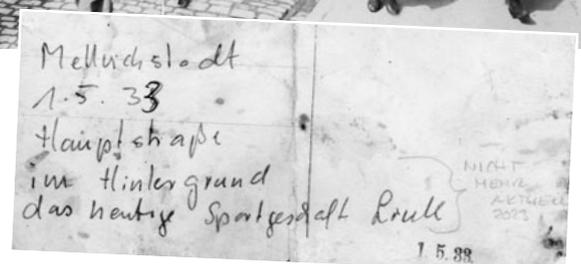 Mellrichstadt
1.5.33
Hauptstraße
im Hintergrund
das heutige Sportgeschäft Krull
NICHT
MEHR
AKTUELL
2023
1.5.33